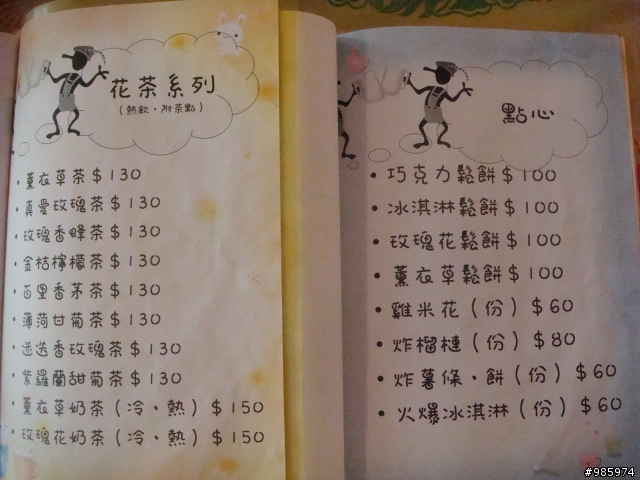 花茶系列
(熱飲·附茶點)
·薰衣草茶$130
·真愛玫瑰茶$130
·玫瑰香蜂茶$130
·金桔檸檬茶$130
·百里香茅茶$130
·薄荷甘菊茶$130
·迷迭香玫瑰茶$130
·紫羅蘭甜菊茶$130
·薰衣草奶茶(冷、熱)$150
·玫瑰花奶茶(冷、熱)$150
點心
·巧克力鬆餅$100
·冰淇淋鬆餅$100
·玫瑰花鬆餅$100
·薰衣草鬆餅$100
·雞米花(份)$60
·炸榴槤(份)$80
·炸薯條、餅(份)$60
·火爆冰淇淋(份)$60
#985974